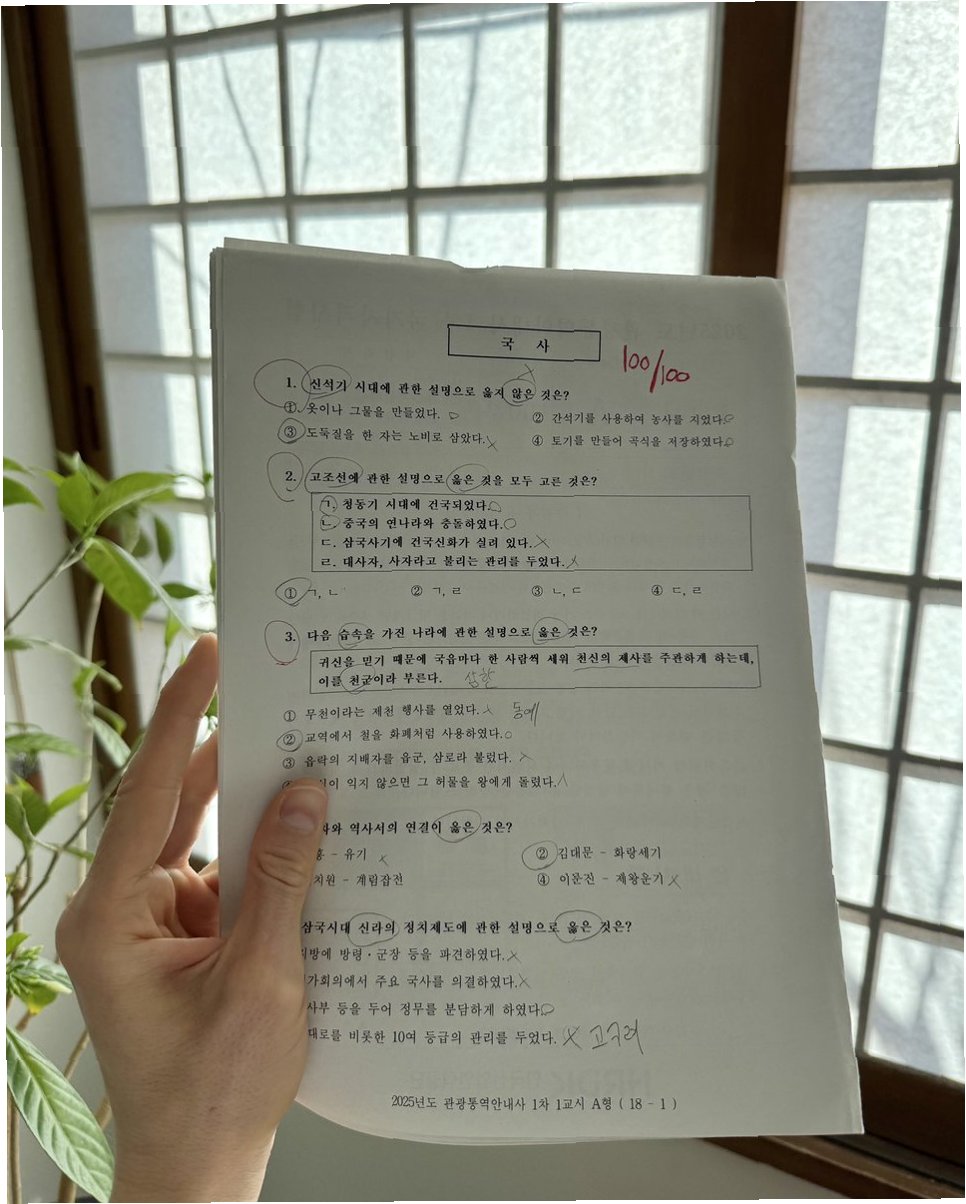 국 사
100/100
1. 신석기 시대에 관한 설명으로 옳지 않은 것은?
① 옷이나 그물을 만들었다. ② 간석기를 사용하여 농사를 지었다.
③ 도둑질을 한 자는 노비로 삼았다. ④ 토기를 만들어 곡식을 저장하였다.
2. 고조선에 관한 설명으로 옳은 것을 모두 고른 것은?
ㄱ. 청동기 시대에 건국되었다.
ㄴ. 중국의 연나라와 충돌하였다.
ㄷ. 삼국사기에 건국신화가 실려 있다.
ㄹ. 대사자, 사자라고 불리는 관리를 두었다.
① ㄱ, ㄴ ② ㄱ, ㄹ ③ ㄴ, ㄷ ④ ㄷ, ㄹ
3. 다음 습속을 가진 나라에 관한 설명으로 옳은 것은?
귀신을 믿기 때문에 국읍마다 한 사람씩 세워 천신의 제사를 주관하게 하는데,
이를 천군이라 부른다. 삼한
① 무천이라는 제천 행사를 열었다. 동예
② 교역에서 철을 화폐처럼 사용하였다.
③ 읍락의 지배자를 읍군, 삼로라 불렀다.
익지 않으면 그 허물을 왕에게 돌렸다.
역사서의 연결이 옳은 것은?
- 유기 ② 김대문 - 화랑세기
- 계림잡전 ④ 이문진 - 제왕운기
삼국시대 신라의 정치제도에 관한 설명으로 옳은 것은?
방령·군장 등을 파견하였다.
주요 국사를 의결하였다.
등을 두어 정무를 분담하게 하였다.
비롯한 10여 등급의 관리를 두었다. 고구려
2025년도 관광통역안내사 1차 1교시 A형 ( 18 - 1 )